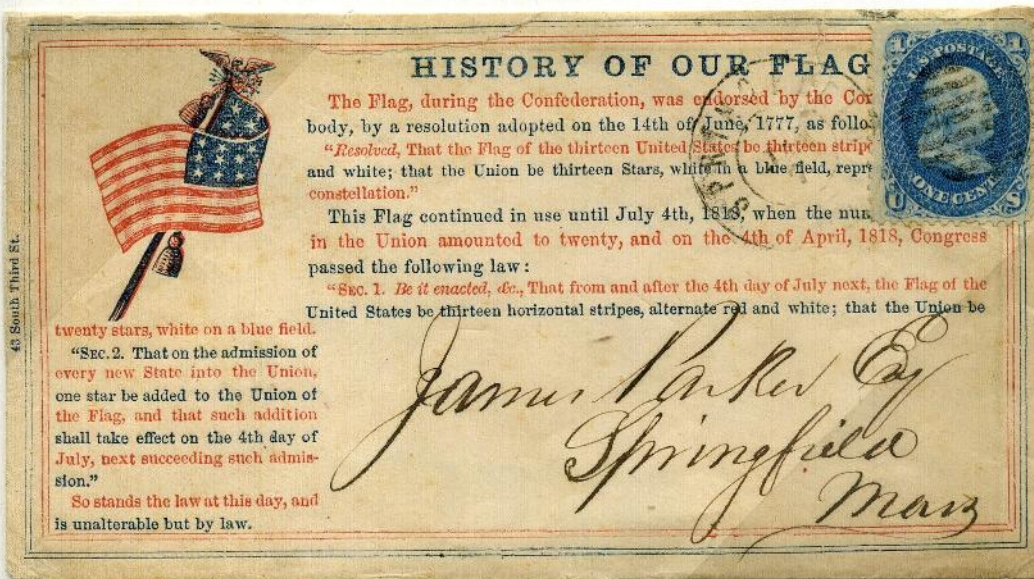 HISTORY OF OUR FLAG
The Flag, during the Confederation, was endorsed by the
body, by a resolution adopted on the 14th of June, 1777, as
“Resolved, That the Flag of the thirteen United States be thirteen
and white; that the Union be thirteen Stars, white in a blue field,
constellation.”
This Flag continued in use until July 4th, 1818, when the
in the Union amounted to twenty, and on the 4th of April, 1818, Congress
passed the following law:
“SEC. 1. Be it enacted, &c., That from and after the 4th day of July next, the Flag of the
United States be thirteen horizontal stripes, alternate red and white; that the Union be
twenty stars, white on a blue field.
“SEC. 2. That on the admission of
every new State into the Union,
one star be added to the Union of
the Flag, and that such addition
shall take effect on the 4th day of
July, next succeeding such admis-
sion.”
So stands the law at this day, and
is unalterable but by law.
43 South Third St.
1 U.S. POSTAGE 1
ONE CENT
James Parker Esq
Springfield
Mass